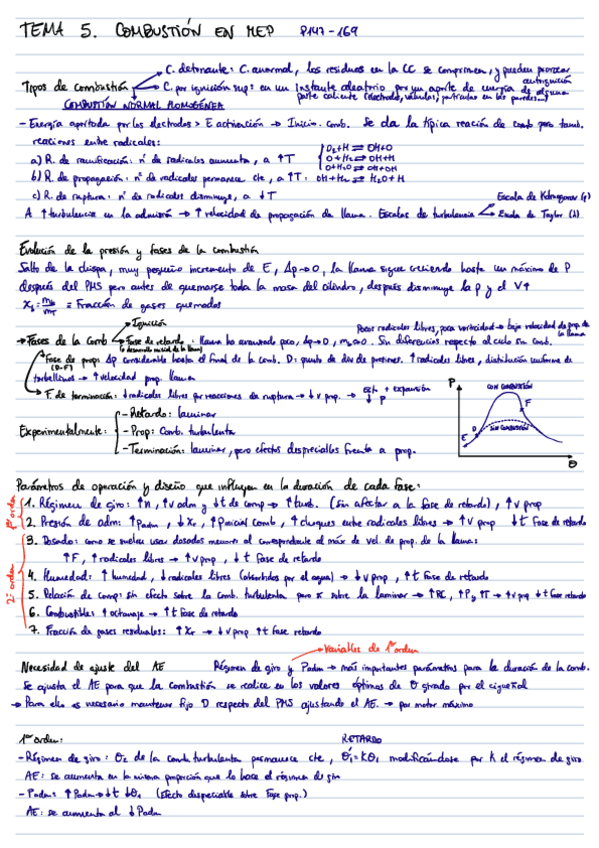 TEMA 5. COMBUSTIÓN EN MEP P147-169
Tipos de combustión
C. detonante: C. anormal, los residuos en la CC se comprimen, y pueden provocar autoignición
C. por ignición sup: en un instante aleatorio por un aporte de energía de alguna parte caliente (electrodo, válvulas, partículas en las paredes...)
COMBUSTIÓN NORMAL HOMOGÉNEA
- Energía aportada por los electrodos > E activación → Inicio comb. Se da la típica reación de comb pero tamb.
reaciones entre radicales:
a) R. de ramificación: nº de radicales aumenta, a ↑T
b) R. de propagación: nº de radicales permanece cte, a ↑T:
c) R. de ruptura: nº de radicales disminuye, a ↓T
O2+H ⇌ OH+O
O+H2 ⇌ OH+H
OH+H2 ⇌ H2O+H
A ↑turbulencia en la admisión → ↑velocidad de propagación de llama. Escalas de turbulencia
Escala de Kolmogorov (η)
Escala de Taylor (λ)
Evolución de la presión y fases de la combustión
Salto de la chispa, muy pequeño incremento de E, Δp→0, la llama sigue creciendo hasta un máximo de P
después del PMS pero antes de quemarse toda la masa del cilindro, después disminuye la p y el V↑
≡ Fracción de gases quemados
→ Fases de la comb
Ignición
Fase de retardo: llama ha avanzado poco, Δp→0, mq≈0. Sin diferencias respecto al ciclo sin comb.
(o desarrollo inicial de la llama)
Pocos radicales libres, poca vorticidad → baja velocidad de prop. de la llama
Fase de prop: Δp considerable hasta el final de la comb. D: punto de div de presiones. ↑radicales libres, distribución uniforme de
(D-F)
torbellinos → ↑velocidad prop. llama
F. de terminación: ↓radicales libres por reacciones de ruptura → ↓v prop. →
+ expansión
↓P
Experimentalmente:
- Retardo: laminar
- Prop: Comb. turbulenta
- Terminación: laminar, pero efectos despreciables frente a prop.
P
CON COMBUSTIÓN
SIN COMBUSTIÓN
F
D
E
θ
Parámetros de operación y diseño que influyen en la duración de cada fase:
1º orden
1. Régimen de giro: ↑n, ↑v adm y ↓t de comp → ↑turb. (sin afectar a la fase de retardo), ↑v prop
2. Presión de adm: ↑Padm, ↓Xr, ↑Pinicial comb, ↑choques entre radicales libres → ↑v prop ↓t Fase de retardo
2º orden
3. Dosado: como se suelen usar dosados menores al correspondiente al máx de vel. de prop. de la llama:
↑F, ↑radicales libres → ↑v prop, ↓t fase de retardo
4. Humedad: ↑humedad, ↓radicales libres (absorbidos por el agua) → ↓v prop, ↑t Fase de retardo
5. Relación de comp: sin efecto sobre la comb. turbulenta pero sí sobre la laminar → ↑RC, ↑P y ↑T → ↑v prop ↓t fase retardo
6. Combustible: ↑octanaje → ↑t Fase de retardo
7. Fracción de gases residuales: ↑Xr → ↓v prop ↑t fase retardo
Variables de 1er orden
Necesidad de ajuste del AE
Régimen de giro y Padm → más importantes parámetros para la duración de la comb.
Se ajusta el AE para que la combustión se realice en los valores óptimos de θ girado por el cigüeñal
→ Para ello es necesario mantener fijo D respecto del PMS ajustando el AE. → par motor máximo
1er orden:
RETARDO
- Régimen de giro: θ2 de la comb turbulenta permanece cte, θ1=kθ1 modificándose por k el régimen de giro.
AE: se aumenta en la misma proporción que lo hace el régimen de giro
- Padm: ↑Padm → ↓t ↓θ1 (Efecto despreciable sobre Fase prop.)
AE: se aumenta al ↓Padm